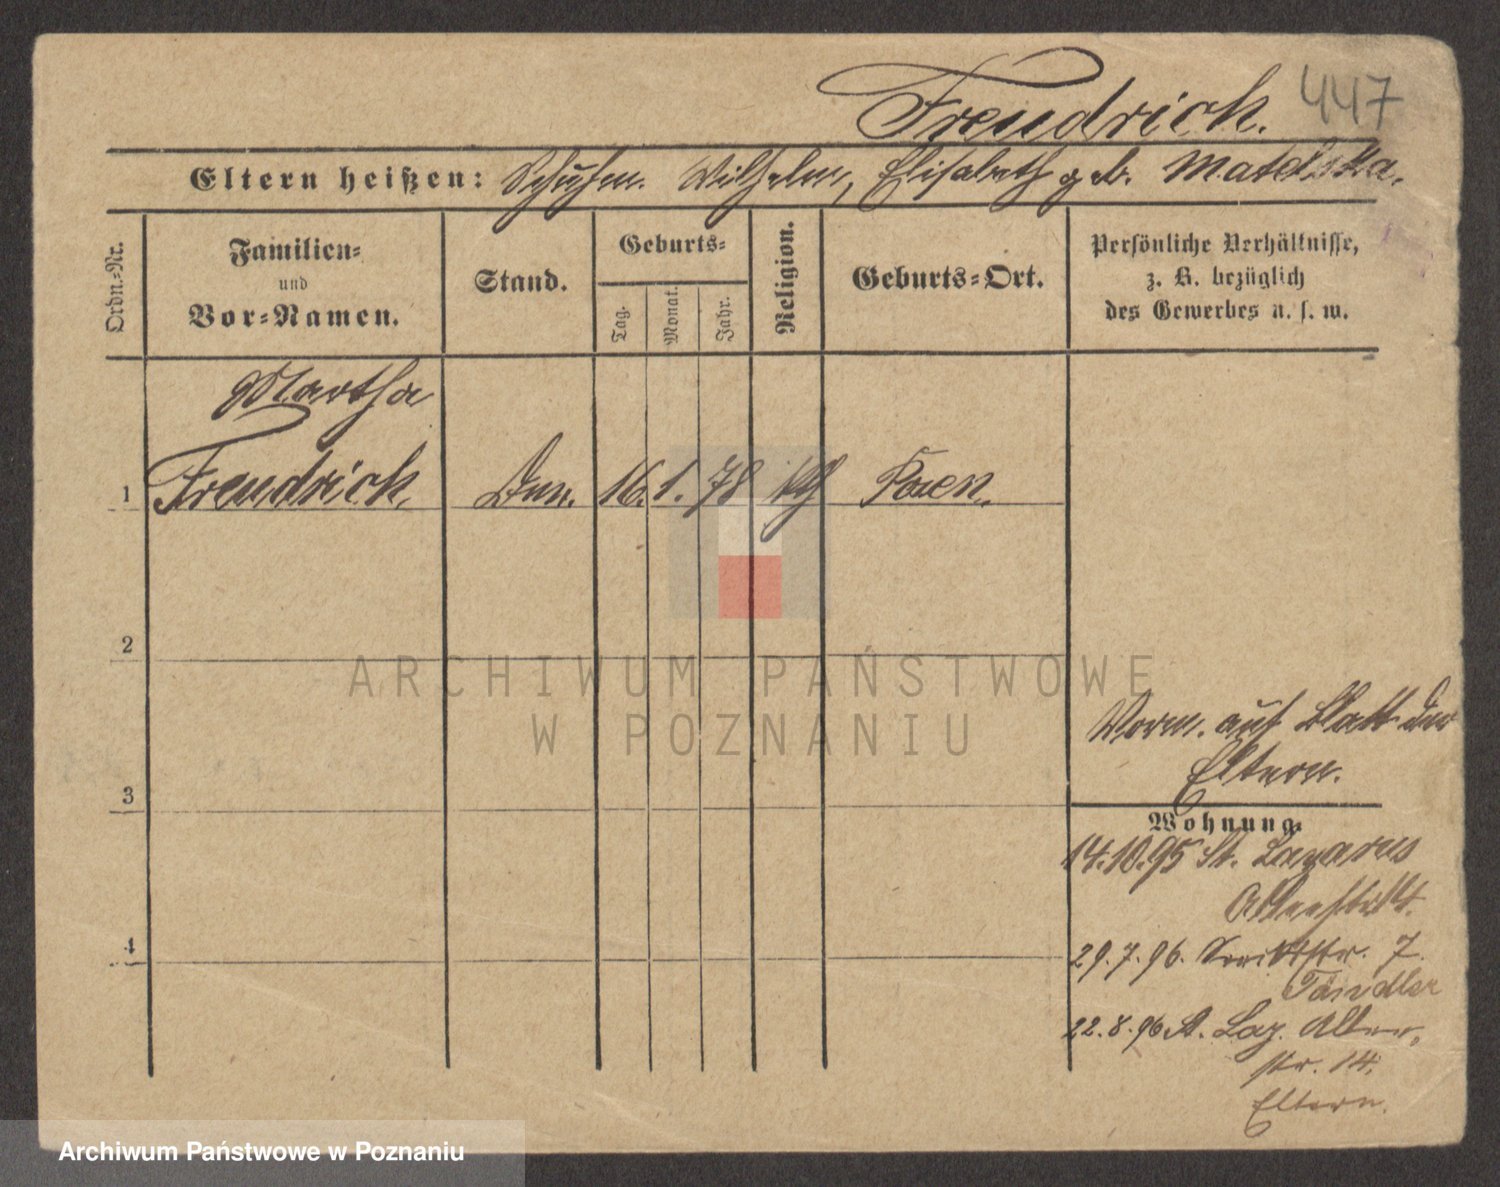 Freudrich. 447
Eltern heißen: Schuhm. Wilhelm, Elisabeth geb. Matelska.
Ordn.-Nr.
Familien-
und
Vor-Namen.
Stand.
Geburts-
Tag.
Monat.
Jahr.
Religion.
Geburts-Ort.
Persönliche Verhältnisse,
z. B. bezüglich
des Gewerbes u. s. w.
Martha
1 Freudrich. 16. 1. 78 kth Posen.
2
3
4
Verm. auf Blatt der
Eltern.
Wohnung.
14.10.95 St. Lazarus
29.7.96. 7.
22.8.96 St. Laz.
str. 14.
Eltern.
ARCHIWUM PAŃSTWOWE
W POZNANIU
Archiwum Państwowe w Poznaniu